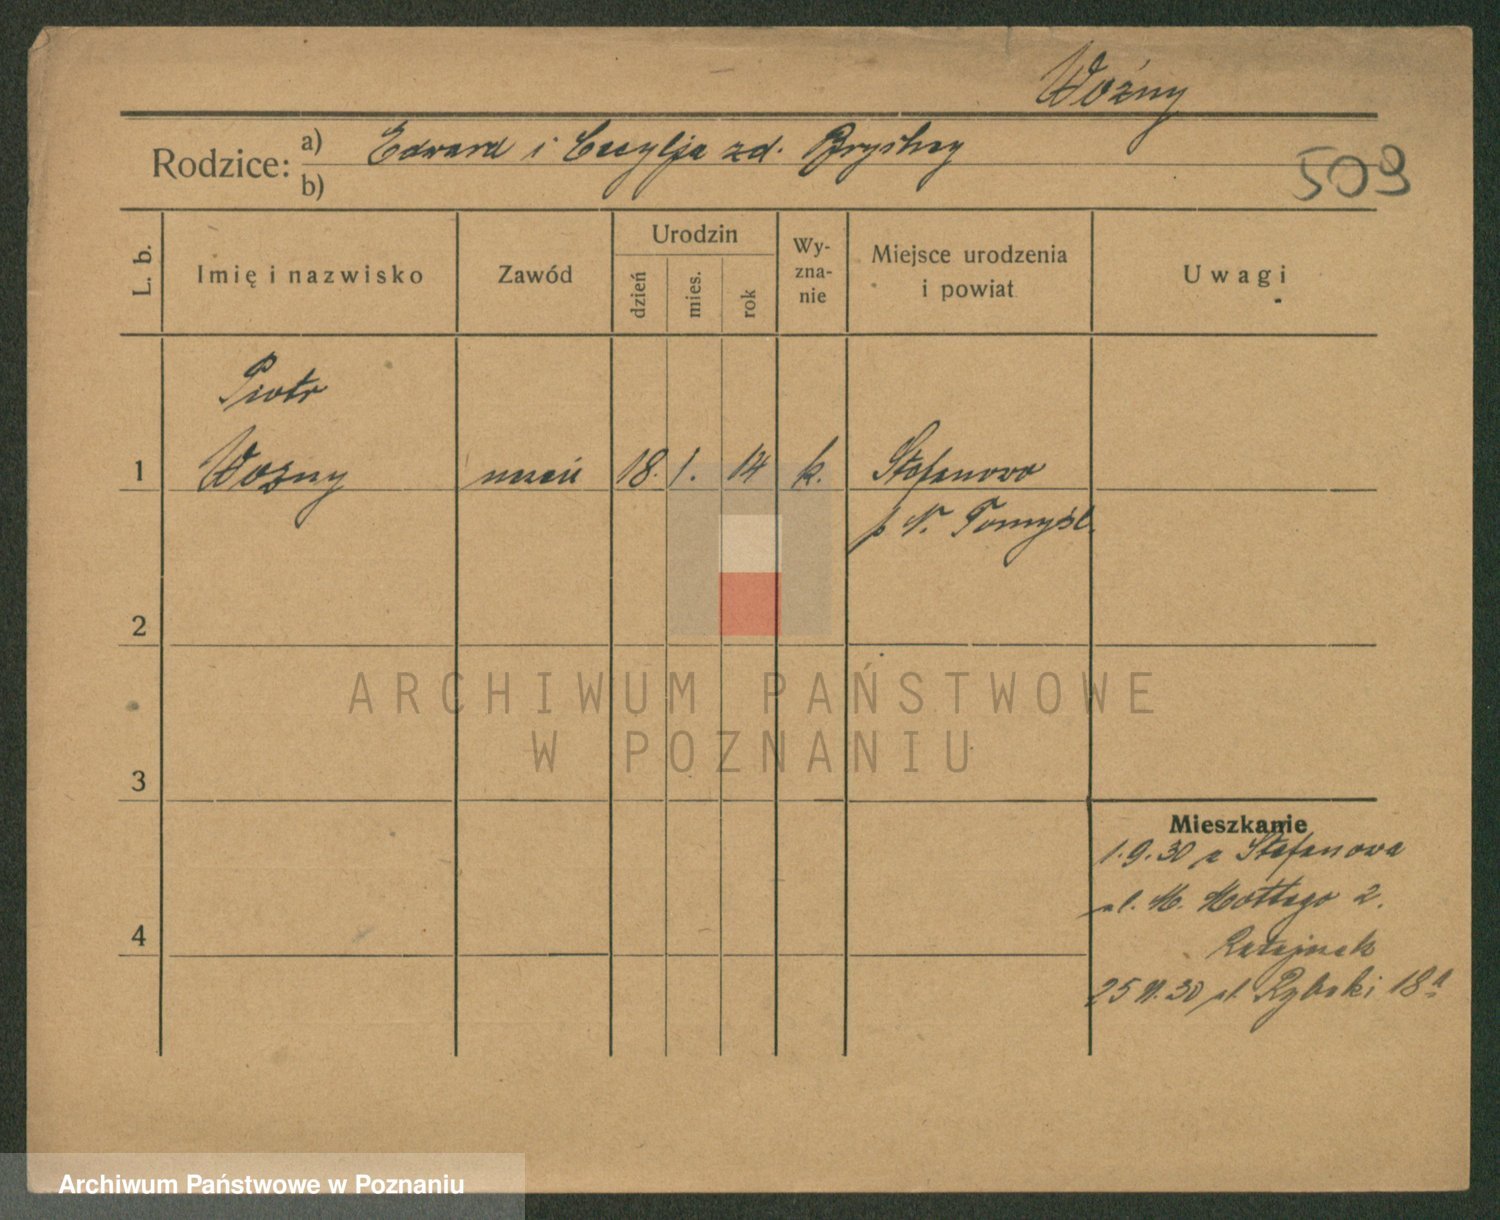 Woźny
Rodzice: a) Edward i Cecylja zd.
b)
509
L. b.
Imię i nazwisko
Zawód
Urodzin
dzień
mies.
rok
Wy-
zna-
nie
Miejsce urodzenia
i powiat
Uwagi
Piotr
1 Woźny uczeń 18. 1. 14 k. Stefanowo
p N. Tomyśl.
2
3
4
Mieszkanie
1.9.30 z Stefanowa
ul. M. Mottego 2.
Ratajczak
25 11.30 ul. Rybaki 18a
ARCHIWUM PAŃSTWOWE
W POZNANIU
Archiwum Państwowe w Poznaniu